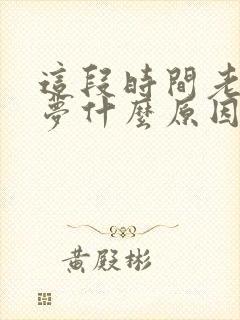 這段時間老
夢什麼原因
黃殿彬